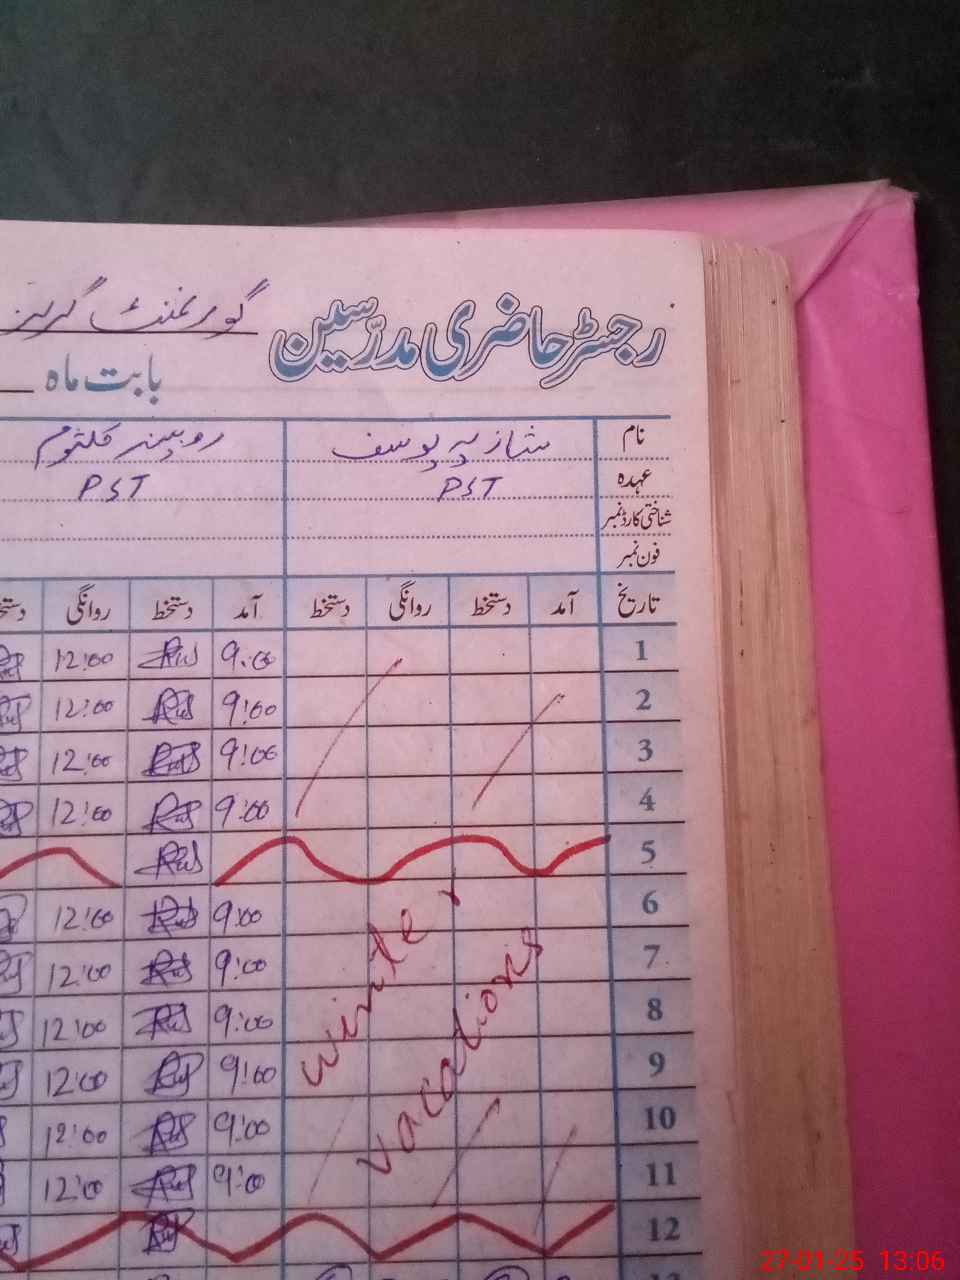 رجسٹر حاضری مدرّسین گورنمنٹ گرلز
بابت ماہ
نام شازیہ یوسف روبینہ کلثوم
عہدہ PST PST
شناختی کارڈ نمبر
فون نمبر
تاریخ آمد دستخط روانگی دستخط آمد دستخط روانگی
1 9:00 12:00
2 9:00 12:00
3 9:00 12:00
4 9:00 12:00
5
6 9:00 12:00
7 9:00 12:00
8 9:00 12:00
9 9:00 12:00
10 9:00 12:00
11 9:00 12:00
12
winter
vacations
27-01-25 13:06